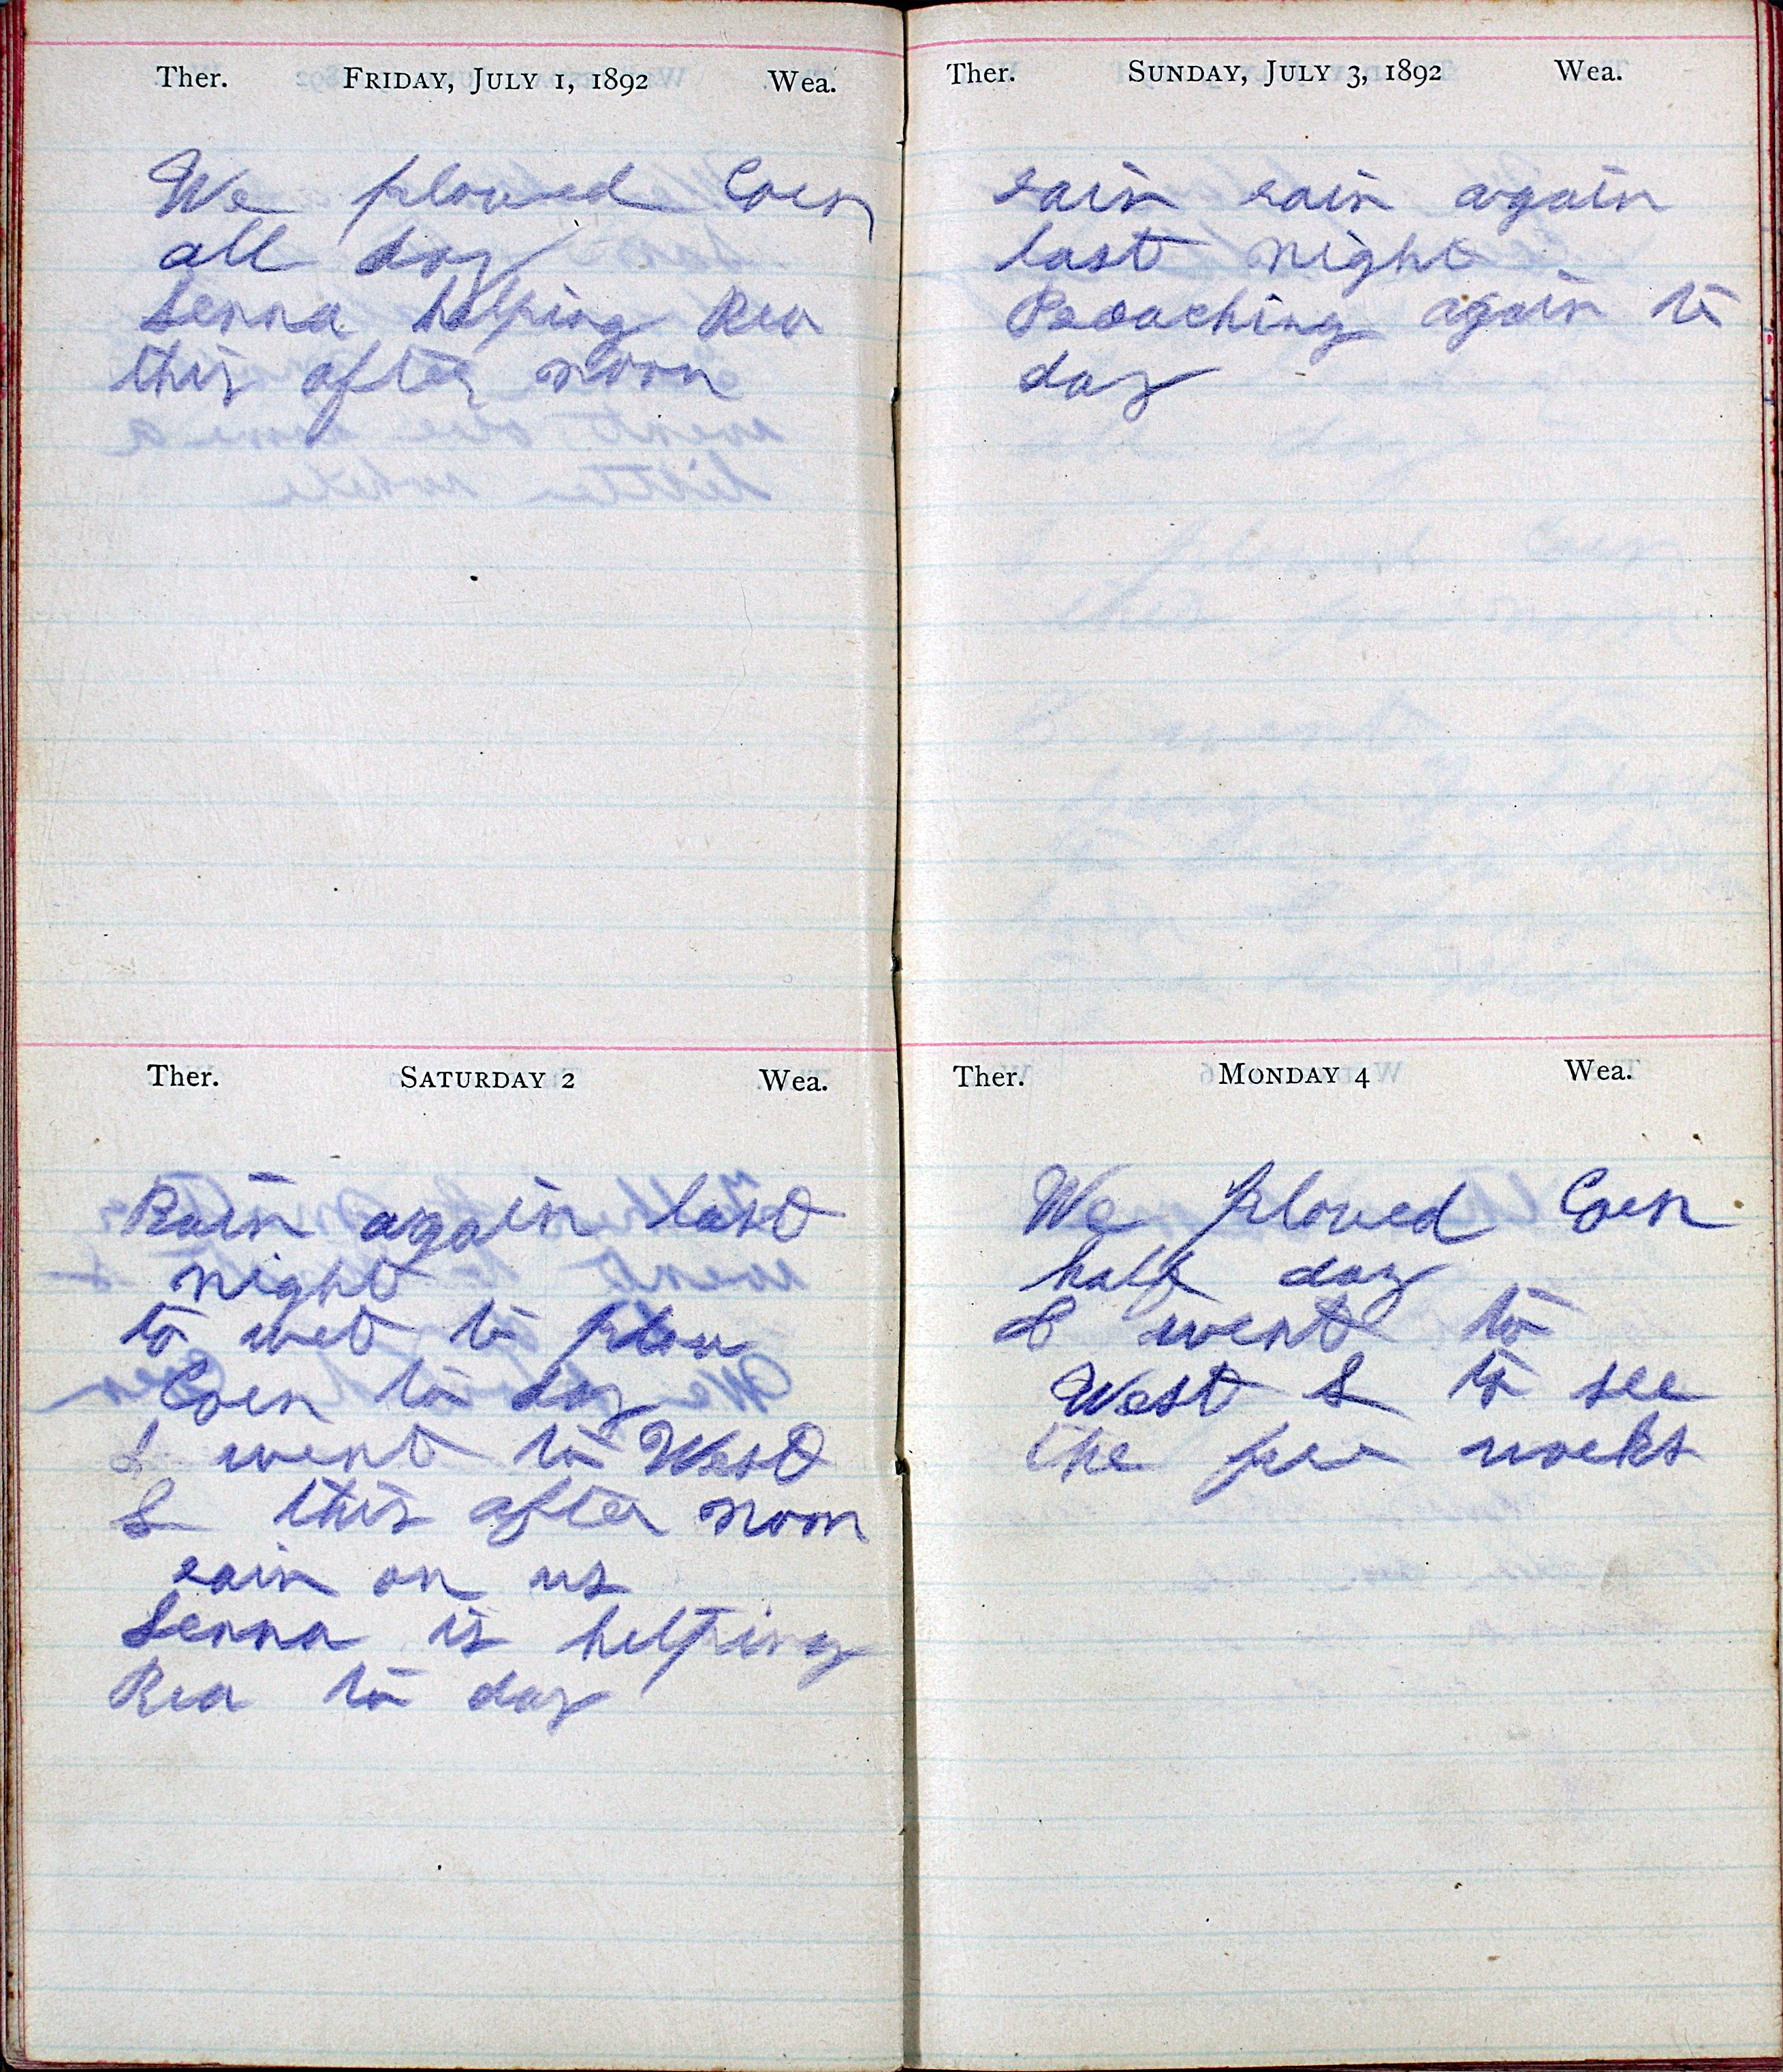 Ther. FRIDAY, JULY 1, 1892 Wea.
We plowed Corn
all day
Lenna helping Rea
this after noon
Ther. SATURDAY 2 Wea.
Rain again last
night
to wet to plow
Corn to day
I went to West
L this after noon
rain on us
Lenna is helping
Rea to day
Ther. SUNDAY, JULY 3, 1892 Wea.
rain rain again
last night
Preaching again to
day
Ther. MONDAY 4 Wea.
We plowed Corn
half day
I went to
West L to see
the fier works